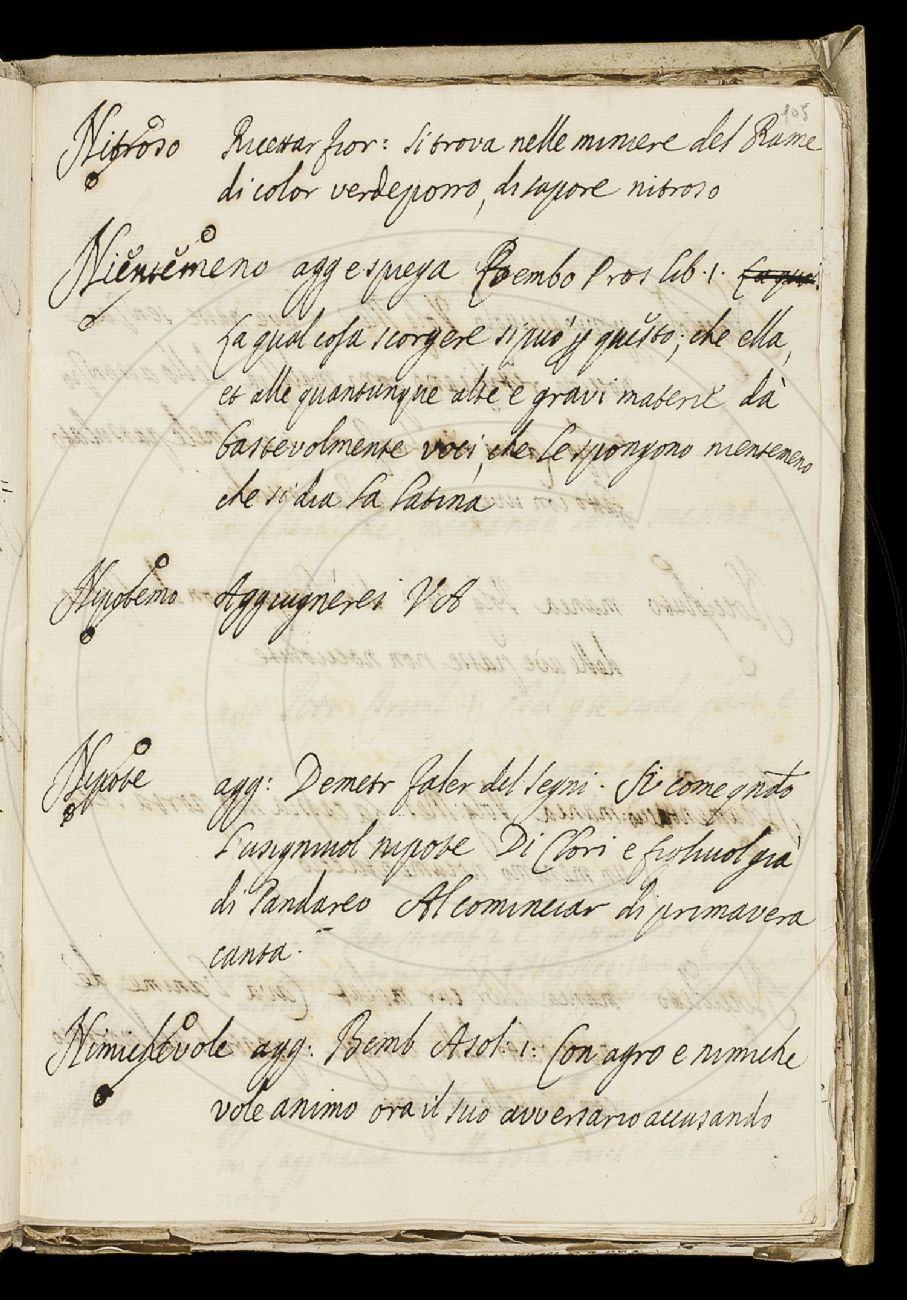 105
Nitroso Ricettar fior: si trova nelle miniere del Rame
di color verdeporro, di sapore nitroso
Nientemeno agg e spiega Bembo Pros lib. 1. La qual
La qual cosa scorgere si può p questo; che ella,
et alle quantunque alte e gravi materie dà
bastevolmente voci, che le spongono nientemeno
che si dia la latina
Nipotemo Aggiugneresi V A
Nipote agg: Demetr faler del segni. Si come qndo
L'usigniuol nipote Di Clori e figliuol già
di Pandareo Al cominciar di primavera
canta.
Nimichevole agg: Bemb Asol: 1: Con agro e nimiche
vole animo ora il suo avversario accusando